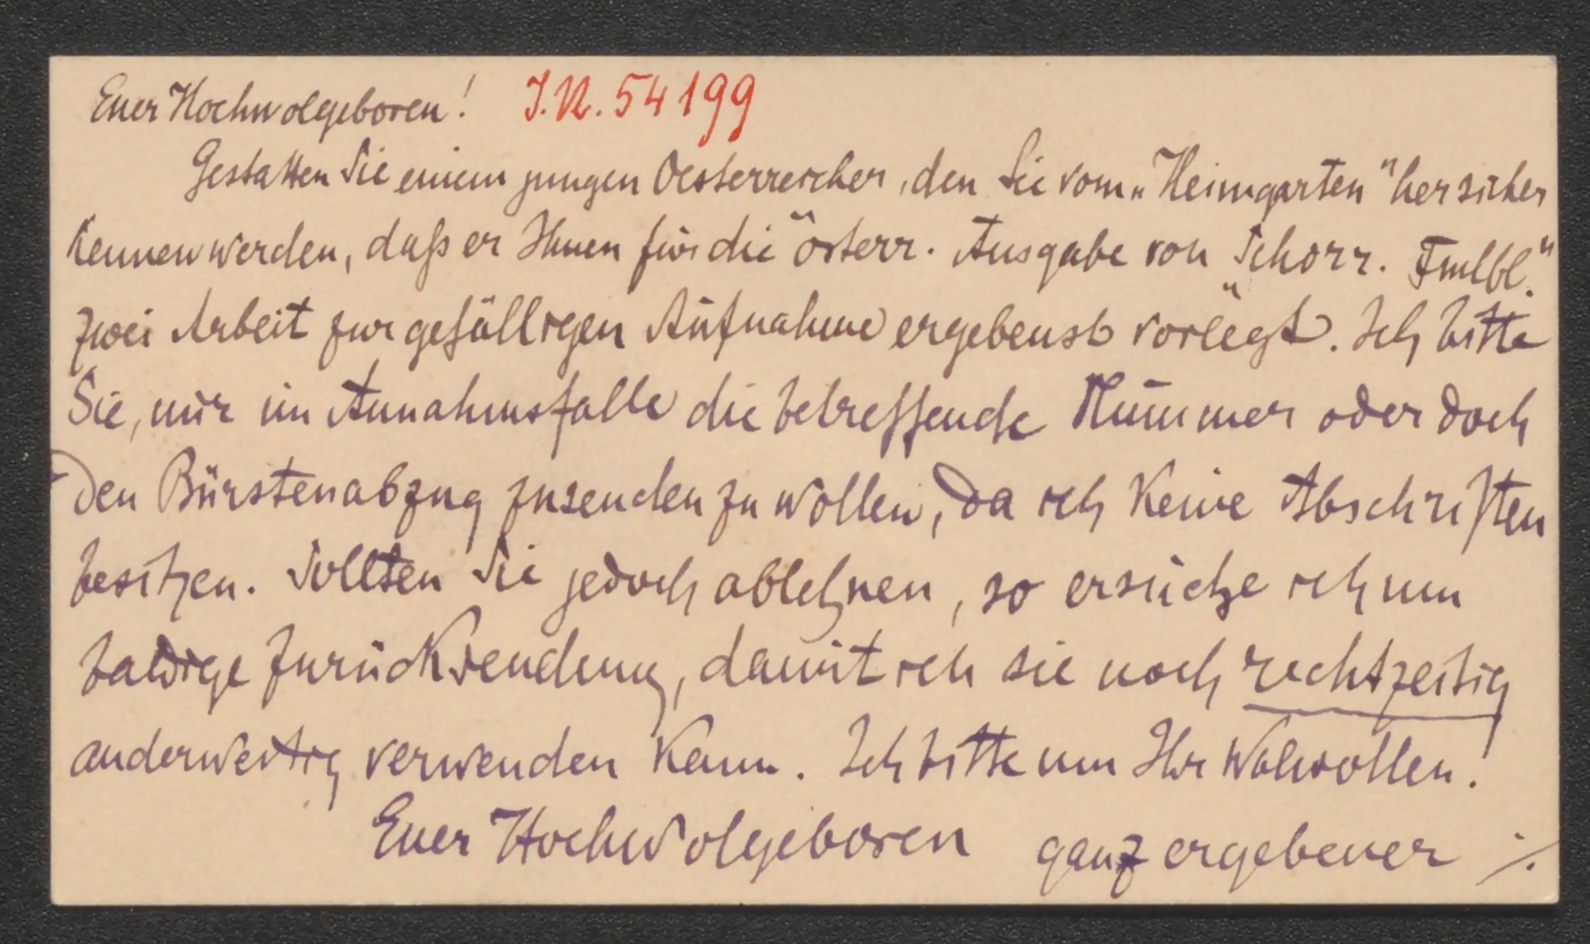 Euer Hochwolgeboren! J.N. 54199
Gestatten Sie einem jungen Oesterreicher, den Sie vom „Heimgarten" her sicher
kennen werden, daß er Ihnen für die österr. Ausgabe von „Schorr. Fmlbl."
zwei Arbeit zur gefälligen Aufnahme ergebenst vorlegt. Ich bitte
Sie, mir im Annahmsfalle die betreffende Nummer oder doch
den Bürstenabzug zusenden zu wollen, da ich keine Abschriften
besitzen. Sollten Sie jedoch ablehnen, so ersuche ich um
baldige Zurücksendung, damit ich sie noch rechtzeitig
anderweitig verwenden kann. Ich bitte um Ihr Wolwollen!
Euer Hochwolgeboren ganz ergebener ./.